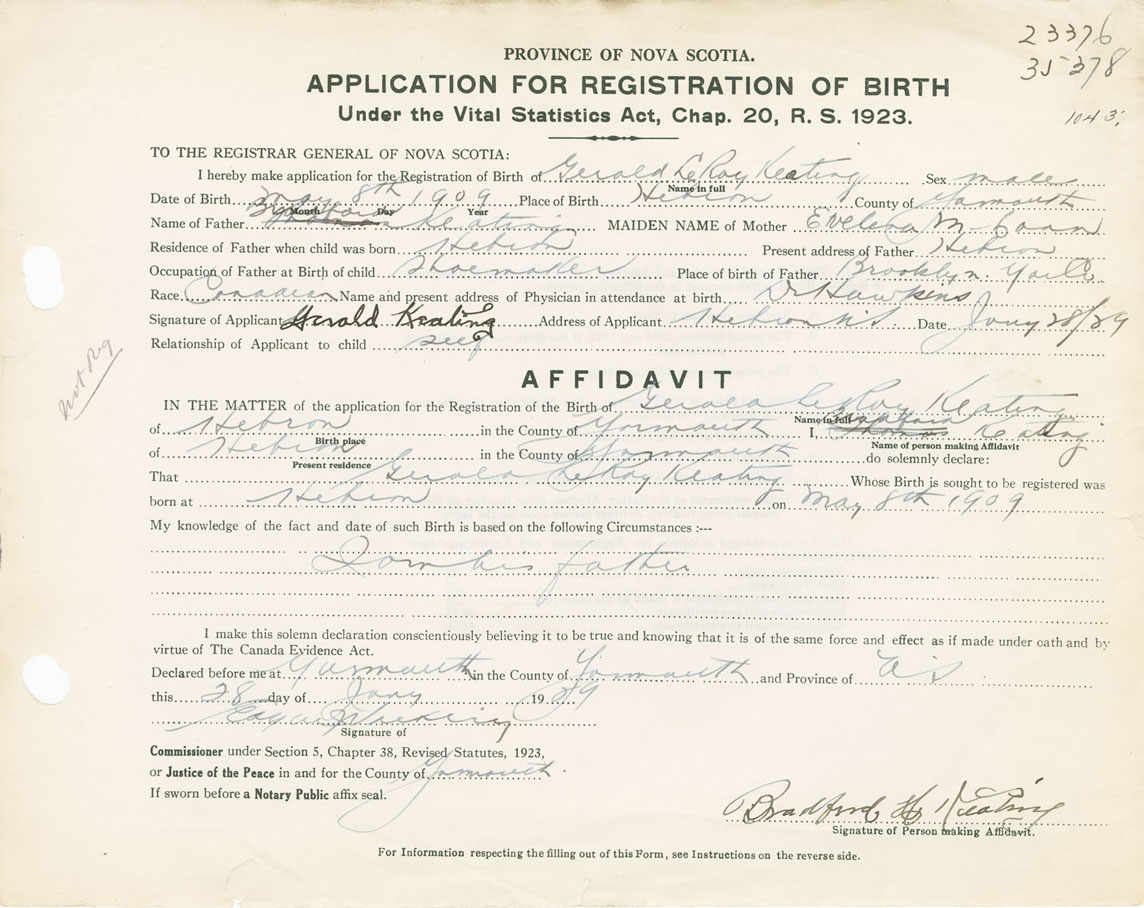 23376
35378
1043
PROVINCE OF NOVA SCOTIA.
APPLICATION FOR REGISTRATION OF BIRTH
Under the Vital Statistics Act, Chap. 20, R. S. 1923.
TO THE REGISTRAR GENERAL OF NOVA SCOTIA:
I hereby make application for the Registration of Birth of Gerald LeRoy Keating Sex male
Name in full
Date of Birth May 8th 1909 Place of Birth Hebron County of Yarmouth
Month Day Year
Name of Father Bradford Keating MAIDEN NAME of Mother Evelena M.
Residence of Father when child was born Hebron Present address of Father Hebron
Occupation of Father at Birth of child Shoemaker Place of birth of Father Brooklyn. Yar Co
Race Canadian Name and present address of Physician in attendance at birth Dr Hawkins
Signature of Applicant Gerald Keating Address of Applicant Hebron N S Date Jany 28/29
Relationship of Applicant to child self
not Reg
AFFIDAVIT
IN THE MATTER of the application for the Registration of the Birth of Gerald LeRoy Keating
Name in full
of Hebron in the County of Yarmouth I, Bradford Keating
Birth place Name of person making Affidavit
of Hebron in the County of Yarmouth do solemnly declare:
Present residence
That Gerald LeRoy Keating Whose Birth is sought to be registered was
born at Hebron on May 8th 1909
My knowledge of the fact and date of such Birth is based on the following Circumstances :---
I am his father
I make this solemn declaration conscientiously believing it to be true and knowing that it is of the same force and effect as if made under oath and by
virtue of The Canada Evidence Act.
Declared before me at Yarmouth in the County of Yarmouth and Province of N S
this 28 day of Jany 1929
Signature of
Commissioner under Section 5, Chapter 38, Revised Statutes, 1923,
or Justice of the Peace in and for the County of Yarmouth
If sworn before a Notary Public affix seal.
Bradford H Keating
Signature of Person making Affidavit.
For Information respecting the filling out of this Form, see Instructions on the reverse side.